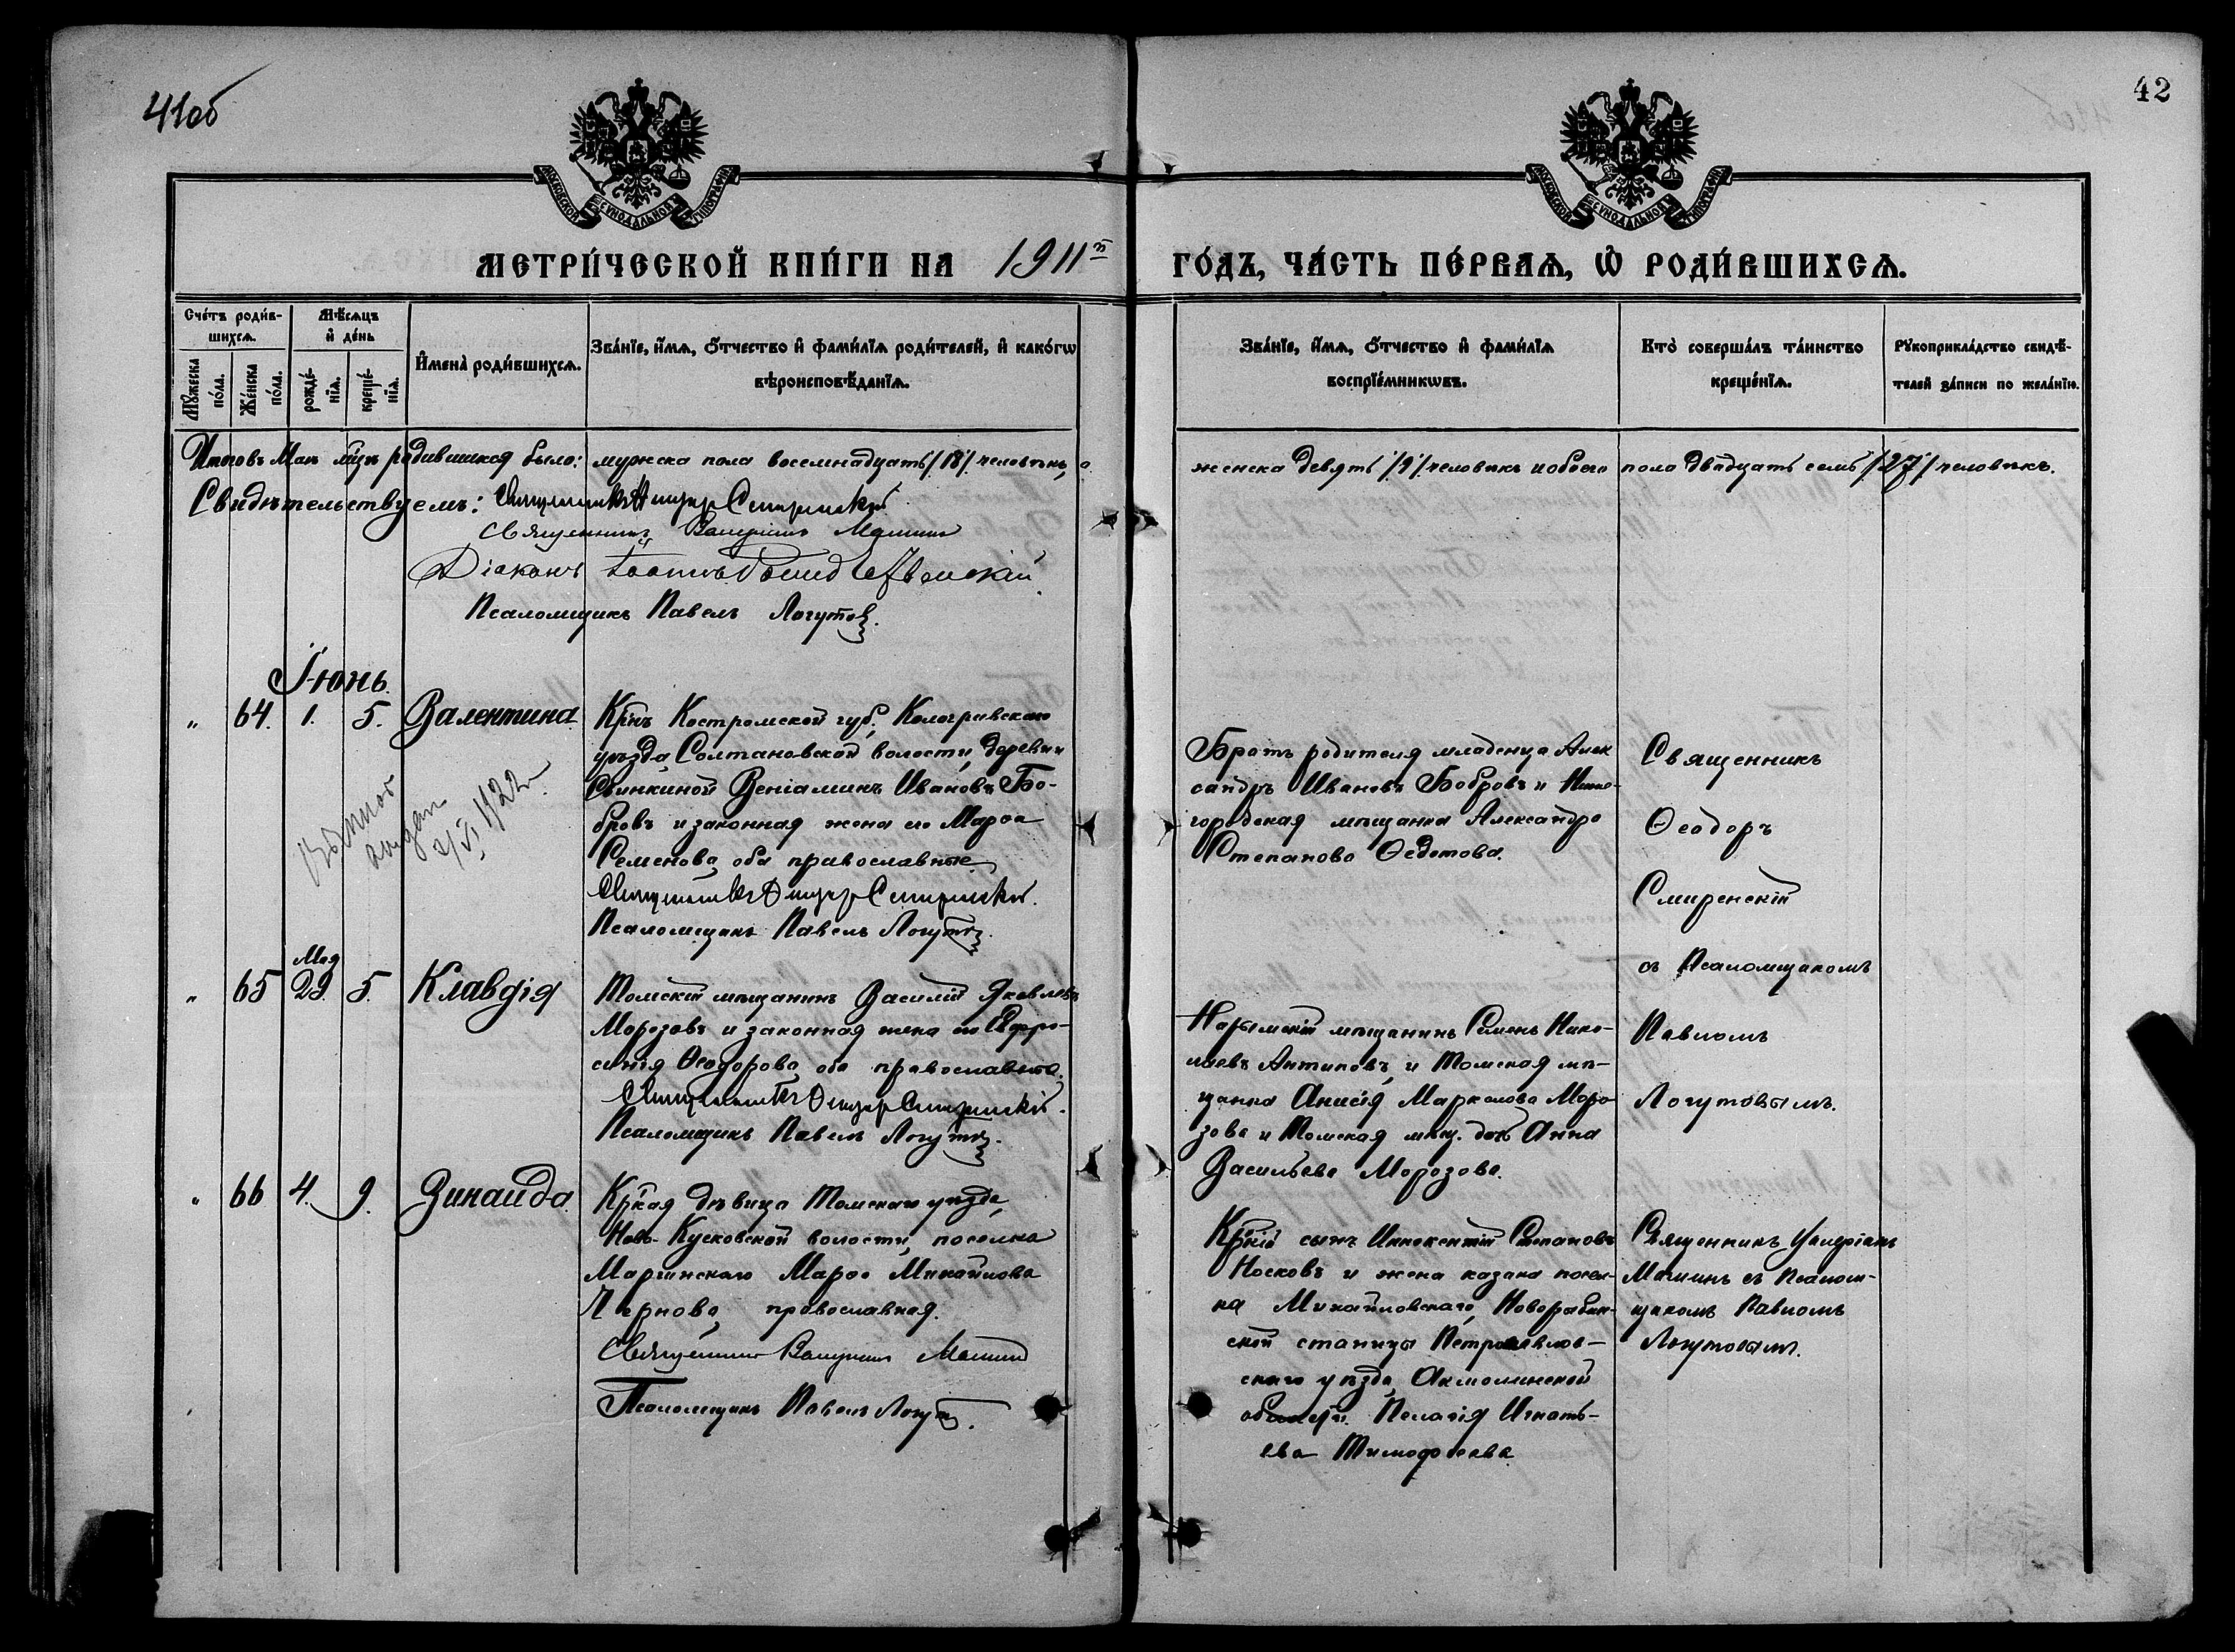 41об
42
МОСКОВСКОЙ СѴНОДАЛЬНОЙ ТИПОГРАФІИ
МОСКОВСКОЙ СѴНОДАЛЬНОЙ ТИПОГРАФІИ
МЕТРИ́ЧЕСКОЙ КНИ́ГИ НА 1911й ГО́ДЪ, ЧА́СТЬ ПЕ́РВАѦ, Ѡ РОДИ́ВШИХСѦ.
Сче́тъ роди́в-
шихсѧ.
Мꙋжеска по́ла.
Же́нска по́ла.
Мѣ́сѧцъ
и҆ де́нь
рожде́-
нїѧ.
креще́-
нїѧ.
И҆мена̀ роди́вшихсѧ.
Зва́нїе, и҆́мѧ, ѻ҆́тчество и҆ фами́лїѧ роди́телей, и҆ како́гѡ
вѣроисповѣ́данїѧ.
Зва́нїе, и҆́мѧ, ѻ҆́тчество и҆ фами́лїѧ
воспрїе́мникѡвъ.
Кто̀ соверша́лъ та́инство
креще́нїѧ.
Рꙋкоприкла́дство свидѣ́-
телей за́писи по жела́нїю.
Итого въ Маѣ мцѣ родившихся было: мужска пола восемнадцать /18/ человѣкъ, а
женска девять /9/ человѣкъ и обоего пола двадцать семь /27/ человѣкъ.
Свидѣтельствуемъ: Священникъ Ѳеодоръ Смиренскій
Священникъ Валеріанъ Мошинъ
Діаконъ Іоаннъ
Псаломщикъ Павелъ Логутовъ.
Іюнь.
„ 64. 1. 5. Валентина
Кр͠нъ Костромской губ., Кологривскаго
уѣзда, Солтановской волости, деревни
Свинкиной Веніаминъ Ивановъ Бо-
бровъ и законная жена его Марѳа
Семенова, оба православные.
Священникъ Ѳеодоръ Смиренскій.
Псаломщикъ Павелъ Логутовъ.
выдан
2/VI 1922 г.
Братъ родителя младенца Алек
сандръ Ивановъ Бобровъ и Ниже-
городская мѣщанка Александра
Степанова Ѳедотова.
Священникъ
Ѳеодоръ
Смиренскій
съ Псаломщикомъ
Павломъ
Логутовымъ.
Мая
„ 65 29. 5. Клавдія
Томскій мѣщанинъ Василій Яковлевъ
Морозовъ и законная жена его Евфро-
синія Ѳеодорова, оба православные.
Священникъ Ѳеодоръ Смиренскій.
Псаломщикъ Павелъ Логутовъ.
Нарымскій мѣщанинъ Семенъ Нико-
лаевъ Антиповъ, и Томская мѣ-
щанка Анисія Маркелова Моро-
зова и Томская мѣщ. дочь Анна
Васильева Морозова.
„ 66 4. 9. Зинаида
Кр͠кая дѣвица Томскаго уѣзда,
Ново-Кусковской волости, поселка
Маріинскаго Марѳа Михайлова
Чернова, православная.
Священникъ Валеріанъ Мошинъ
Псаломщикъ Павелъ Логутовъ.
Кр͠кій сынъ Иннокентій Степановъ
Носковъ и жена казака посел-
ка Михайловскаго, Новорыбин-
ской станицы Петропавлов-
скаго уѣзда, Акмолинской
области Пелагія Игнать-
ева Тимофеева
Священникъ Валеріанъ
Мошинъ съ Псалом-
щикомъ Павломъ
Логутовымъ.